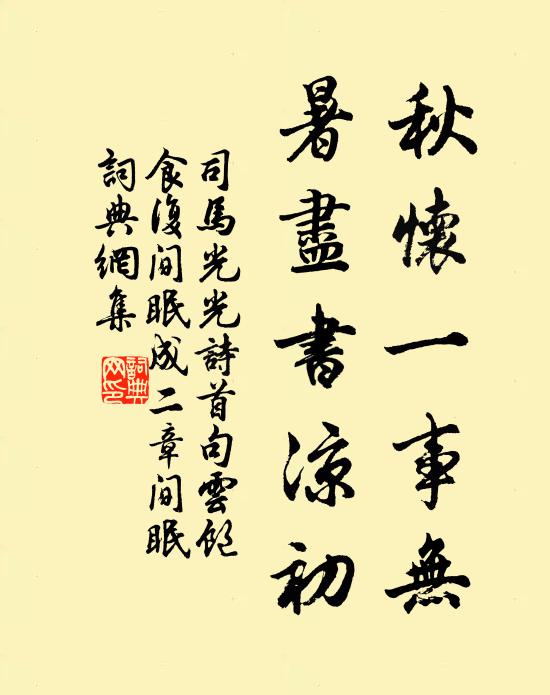 秋懷一事無
暑盡書涼初
司馬光光詩首句雲飽
食復間眠成二章間眠
詞典網集
詞典網印